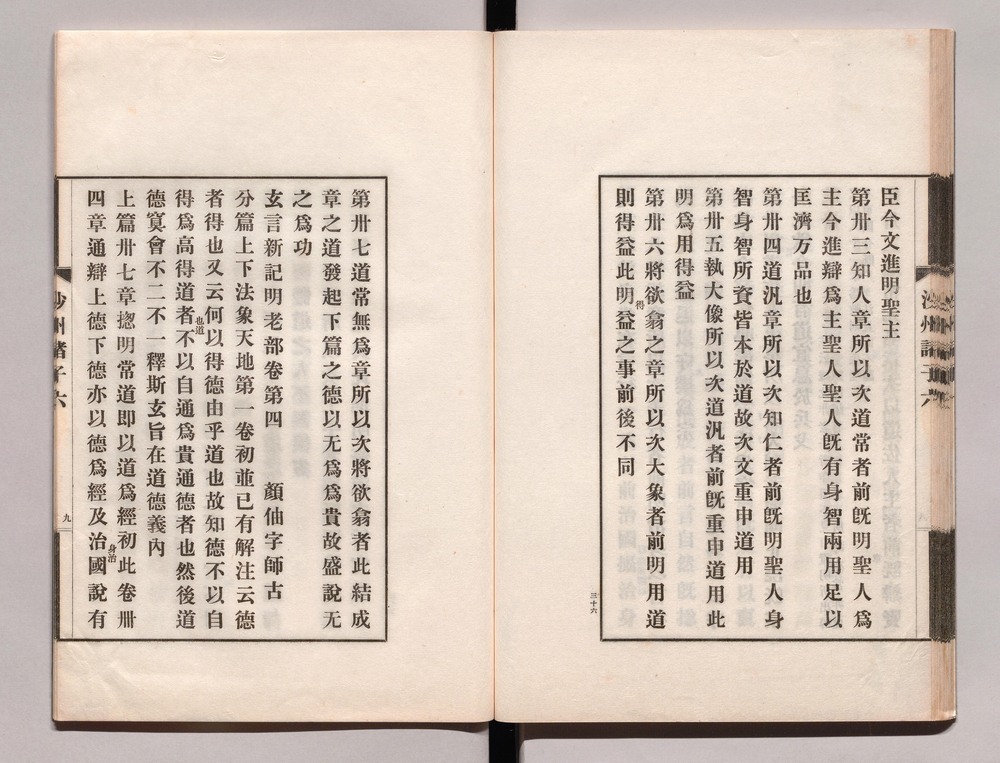 臣今文進明聖主
第卅三知人章所以次道常者前旣明聖人爲
主今進辯爲主聖人聖人旣有身智兩用足以
匡濟万品也
第卅四道汎章所以次知仁者前旣明聖人身
智身智所資皆本於道故次文重申道用
第卅五執大像所以次道汎者前旣重申道用此
明爲用得益
第卅六將欲翕之章所以次大象者前明用道
則得益此明得益之事前後不同
三十六
第卅七道常無爲章所以次將欲翕者此結成
章之道發起下篇之德以无爲爲貴故盛說无
之爲功
玄言新記明老部卷第四 顏仙字師古
分篇上下法象天地第一卷初並已有解注云德
者得也又云何以得德由乎道也故知德不以自
得爲高得道者也道不以自通爲貴通德者也然後道
德寞會不二不一釋斯玄旨在道德義內
上篇卅七章揔明常道卽以道爲經初此卷卌
四章通辯上德下德亦以德爲經及治身治國說有
沙州諸子六
九